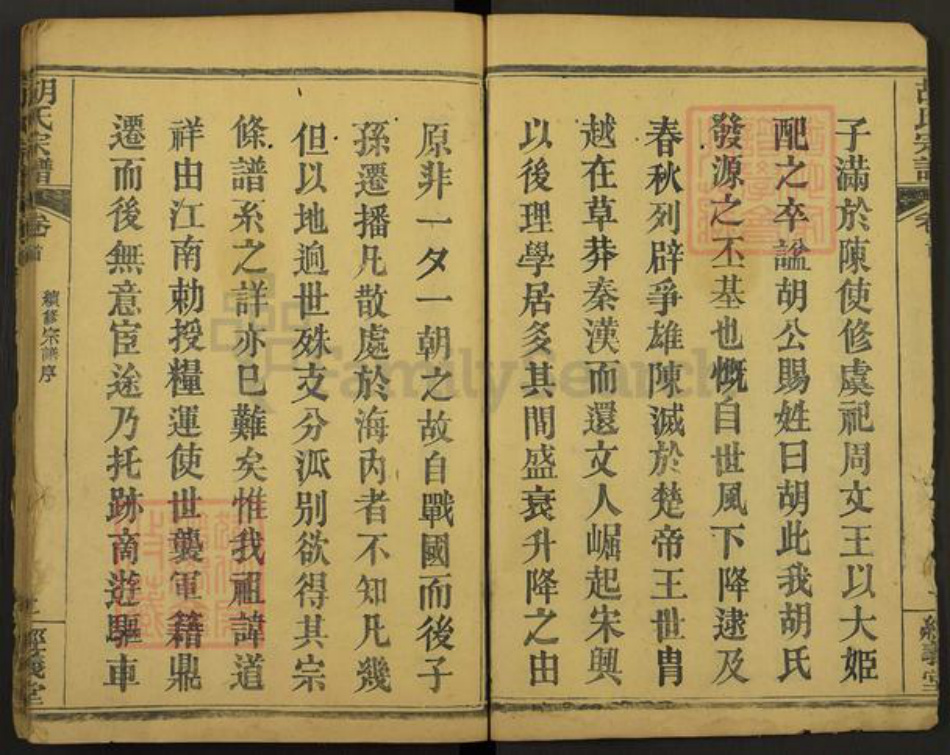 子滿於陳使修虞祀周文王以大姬
配之卒諡胡公賜姓曰胡此我胡氏
發源之丕基也慨自世風下降逮及
春秋列辟爭雄陳滅於楚帝王世胄
越在草莽秦漢而還文人崛起宋興
以後理學居多其間盛衰升降之由
原非一夕一朝之故自戰國而後子
孫遷播凡散處於海內者不知凡幾
但以地迥世殊支分派別欲得其宗
條譜系之詳亦已難矣惟我祖諱道
祥由江南勅授糧運使世襲軍籍鼎
遷而後無意宦途乃托跡商遊驅車
胡氏宗譜
卷首
續修宗譜序
經義堂
胡氏宗譜
卷首
經義堂
FamilySearch